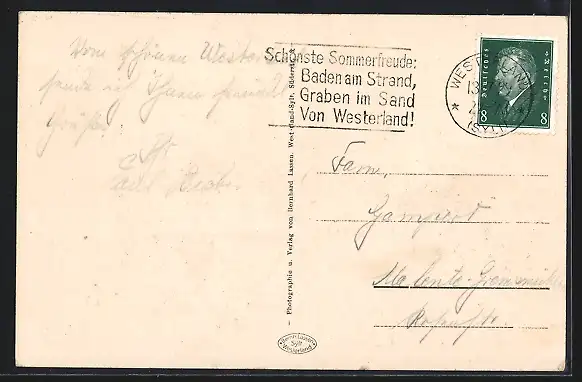 Vom schönen Westerland
sende ich Ihnen
Grüße
Ihr
Schönste Sommerfreude:
Baden am Strand,
Graben im Sand
Von Westerland!
WESTERLAND
(SYLT)
Deutsches Reich
8 8
Fam.
Malente-Gremsmühlen
— Photographie u. Verlag von Bernhard Lassen, Westerland-Sylt, Süderstr.
Bernh. Lassen
Sylt
Westerland